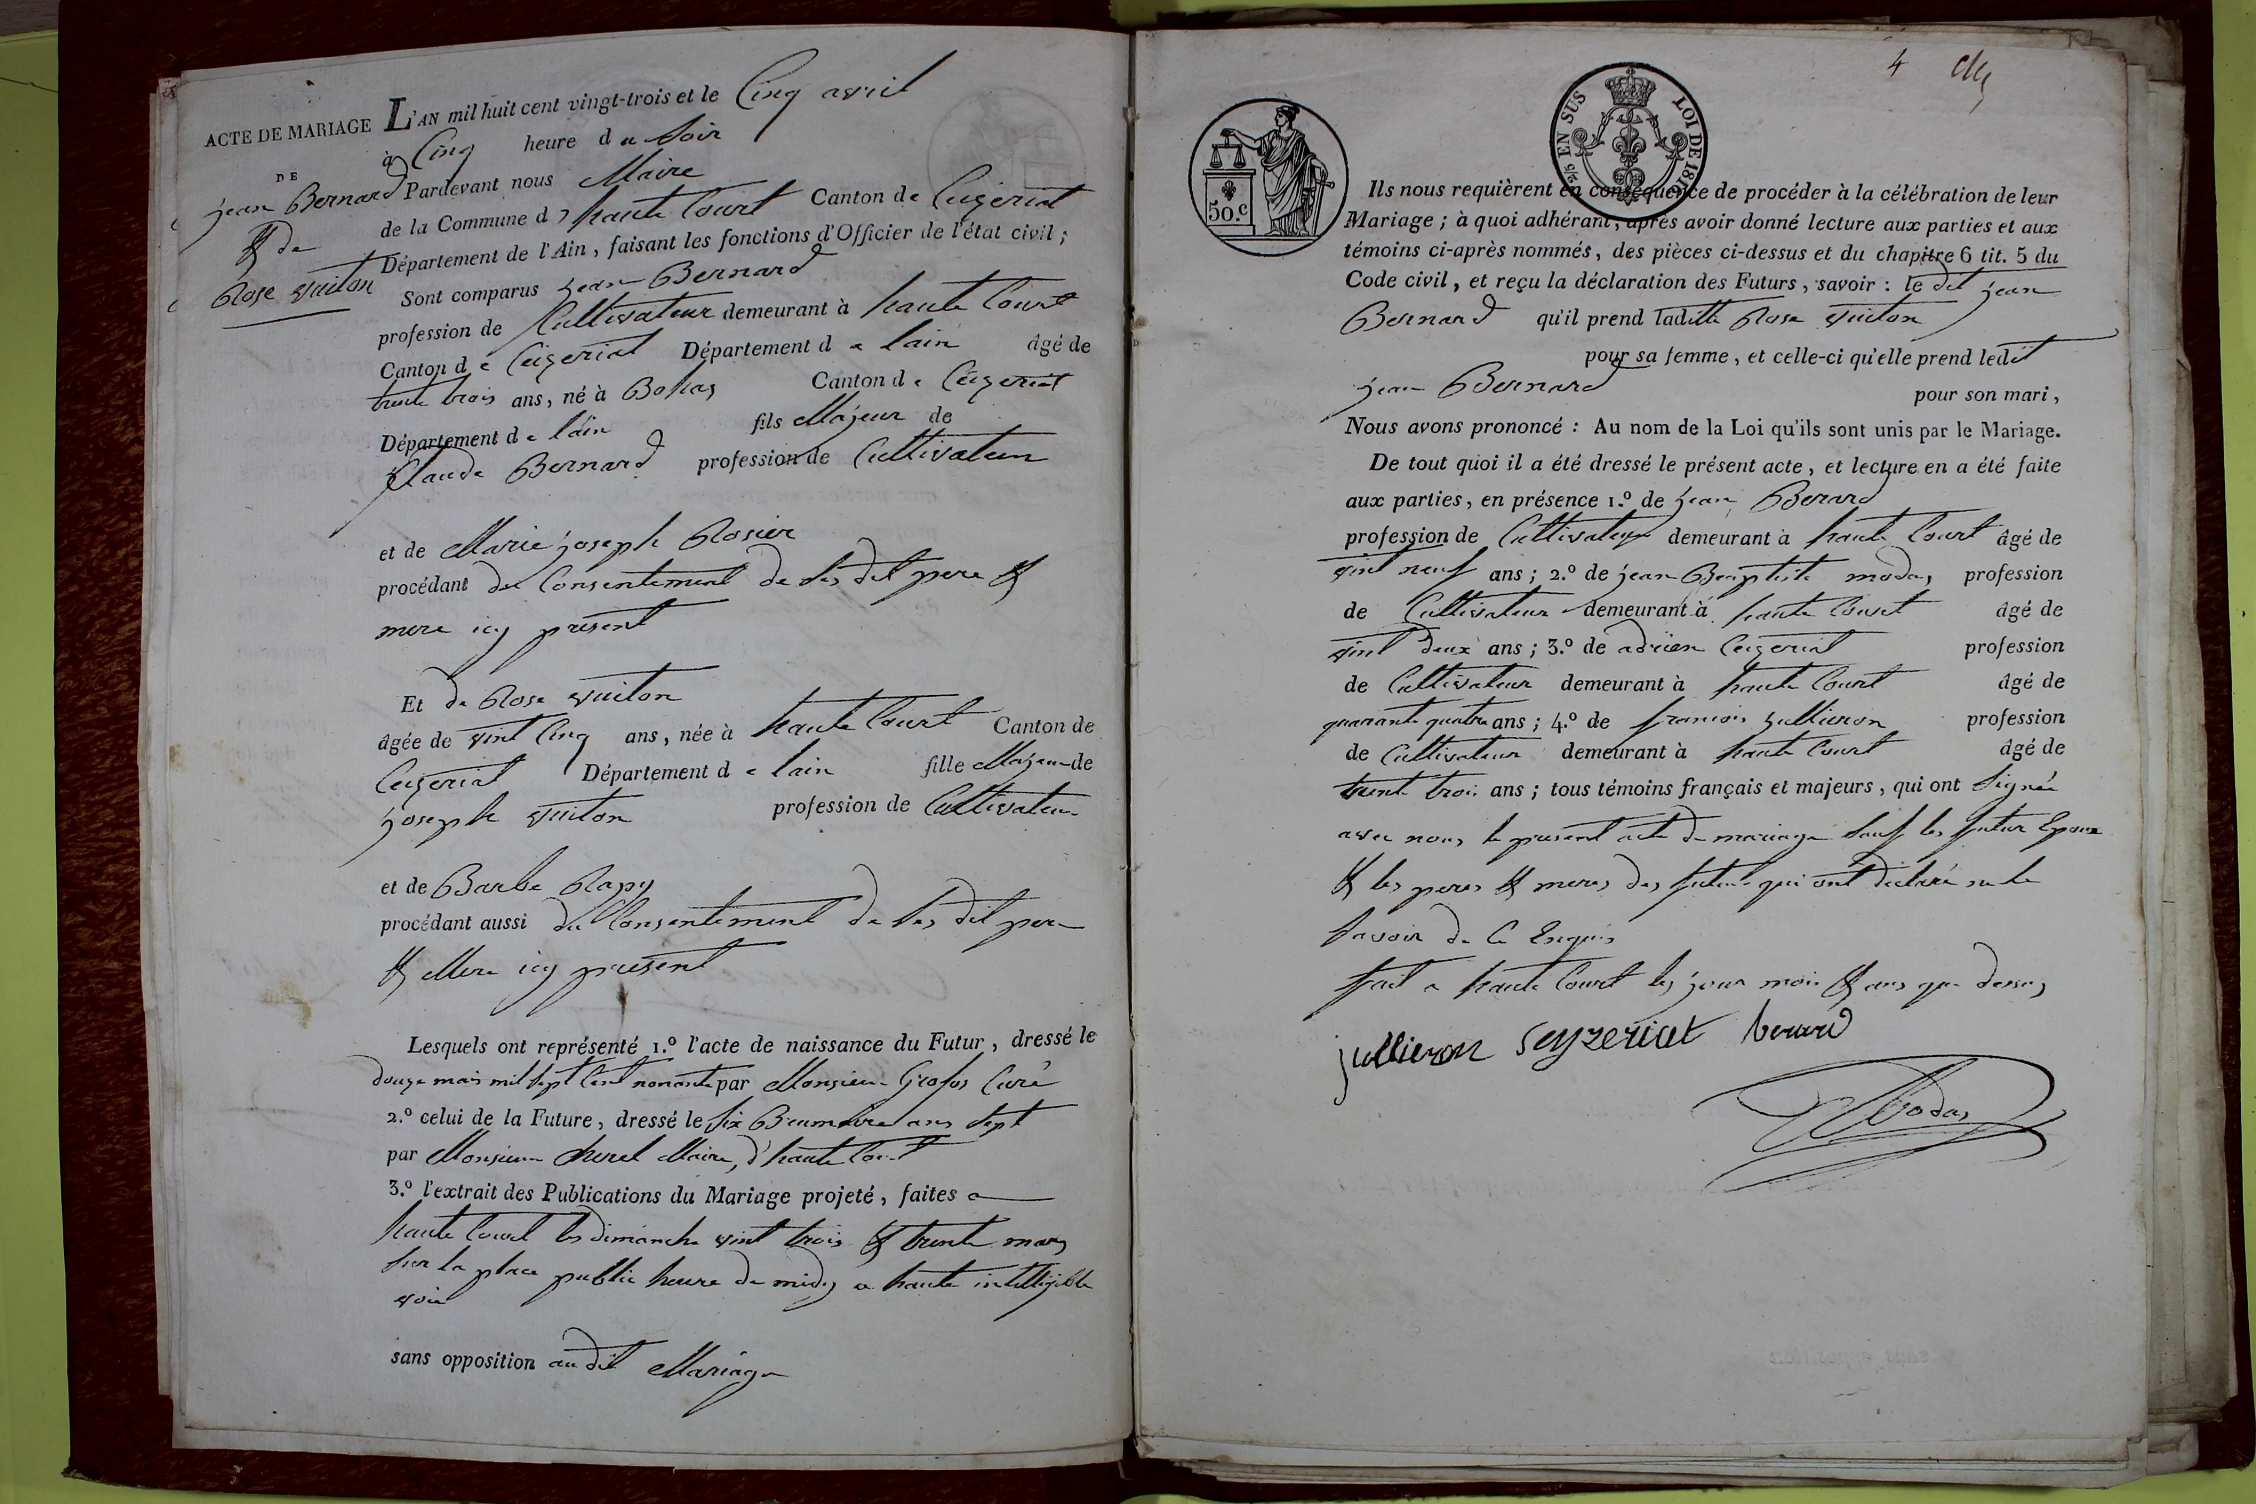 ACTE DE MARIAGE
DE
jean Bernard
& de
Rose vuiton
L'AN mil huit cent vingt-trois et le Cinq avril
à Cinq heure du soir
Pardevant nous Maire
de la Commune d haute Court Canton de Ceizeriat
Département de l'Ain, faisant les fonctions d'Officier de l'état civil;
Sont comparus jean Bernard
profession de Cultivateur demeurant à haute Court
Canton de Ceizeriat Département de lain âgé de
trente trois ans, né à Bohas Canton de Ceizeriat
Département de lain fils Majeur de
Claude Bernard profession de Cultivateur
et de Marie joseph Rosier
procédant du Consentement de ses dit pere &
mere icy present
Et de Rose vuiton
âgée de vint Cinq ans, née à haute Court Canton de
Ceizeriat Département de lain fille Majeur de
joseph vuiton profession de Cultivateur
et de Barbe Rapy
procédant aussi du Consentement de ses dit pere
& Mere icy present
Lesquels ont représenté 1.º l'acte de naissance du Futur, dressé le
douze mars mil sept Cent nonante par Monsieur Curé
2.º celui de la Future, dressé le six Brumaire ans sept
par Monsieur Maire, d'haute Court
3.º l'extrait des Publications du Mariage projeté, faites a
haute Court les dimanche vint trois & trente mars
sur la place public heure de midy a haute intelligible
voix
sans opposition au dit Mariage
4
50.c
2/5 EN SUS LOI DE 1816
Ils nous requièrent en conséquence de procéder à la célébration de leur
Mariage; à quoi adhérant, après avoir donné lecture aux parties et aux
témoins ci-après nommés, des pièces ci-dessus et du chapitre 6 tit. 5 du
Code civil, et reçu la déclaration des Futurs, savoir: le dit jean
Bernard qu'il prend laditte Rose vuiton
pour sa femme, et celle-ci qu'elle prend ledit
jean Bernard pour son mari,
Nous avons prononcé: Au nom de la Loi qu'ils sont unis par le Mariage.
De tout quoi il a été dressé le présent acte, et lecture en a été faite
aux parties, en présence 1.º de jean Berard
profession de Cultivateur demeurant à haute Court âgé de
vint neuf ans; 2.º de jean Baptiste modas profession
de Cultivateur demeurant à haute Court âgé de
vint deux ans; 3.º de adrien Ceizeriat profession
de Cultivateur demeurant à haute Court âgé de
quarante quatre ans; 4.º de francois jullieron profession
de Cultivateur demeurant à haute Court âgé de
trente trois ans; tous témoins français et majeurs, qui ont signée
avec nous le present acte de mariage sauf les futur Epoux
& les peres & meres des futurs qui ont déclaré ne le
savoir de Ce Enquis
fait a haute Court les jour mois & ans que dessus
jullieron seyzeriat berard
Modas